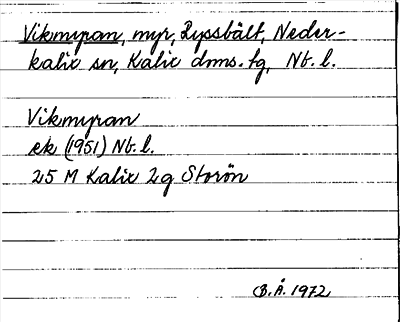 Vikmyran, myr, Ryssbält, Neder-
kalix sn, Kalix dnms. tg, Nb. l.
Vikmyran
ek (1951) Nb. l.
25 M Kalix 2g Storön
B. Å. 1972